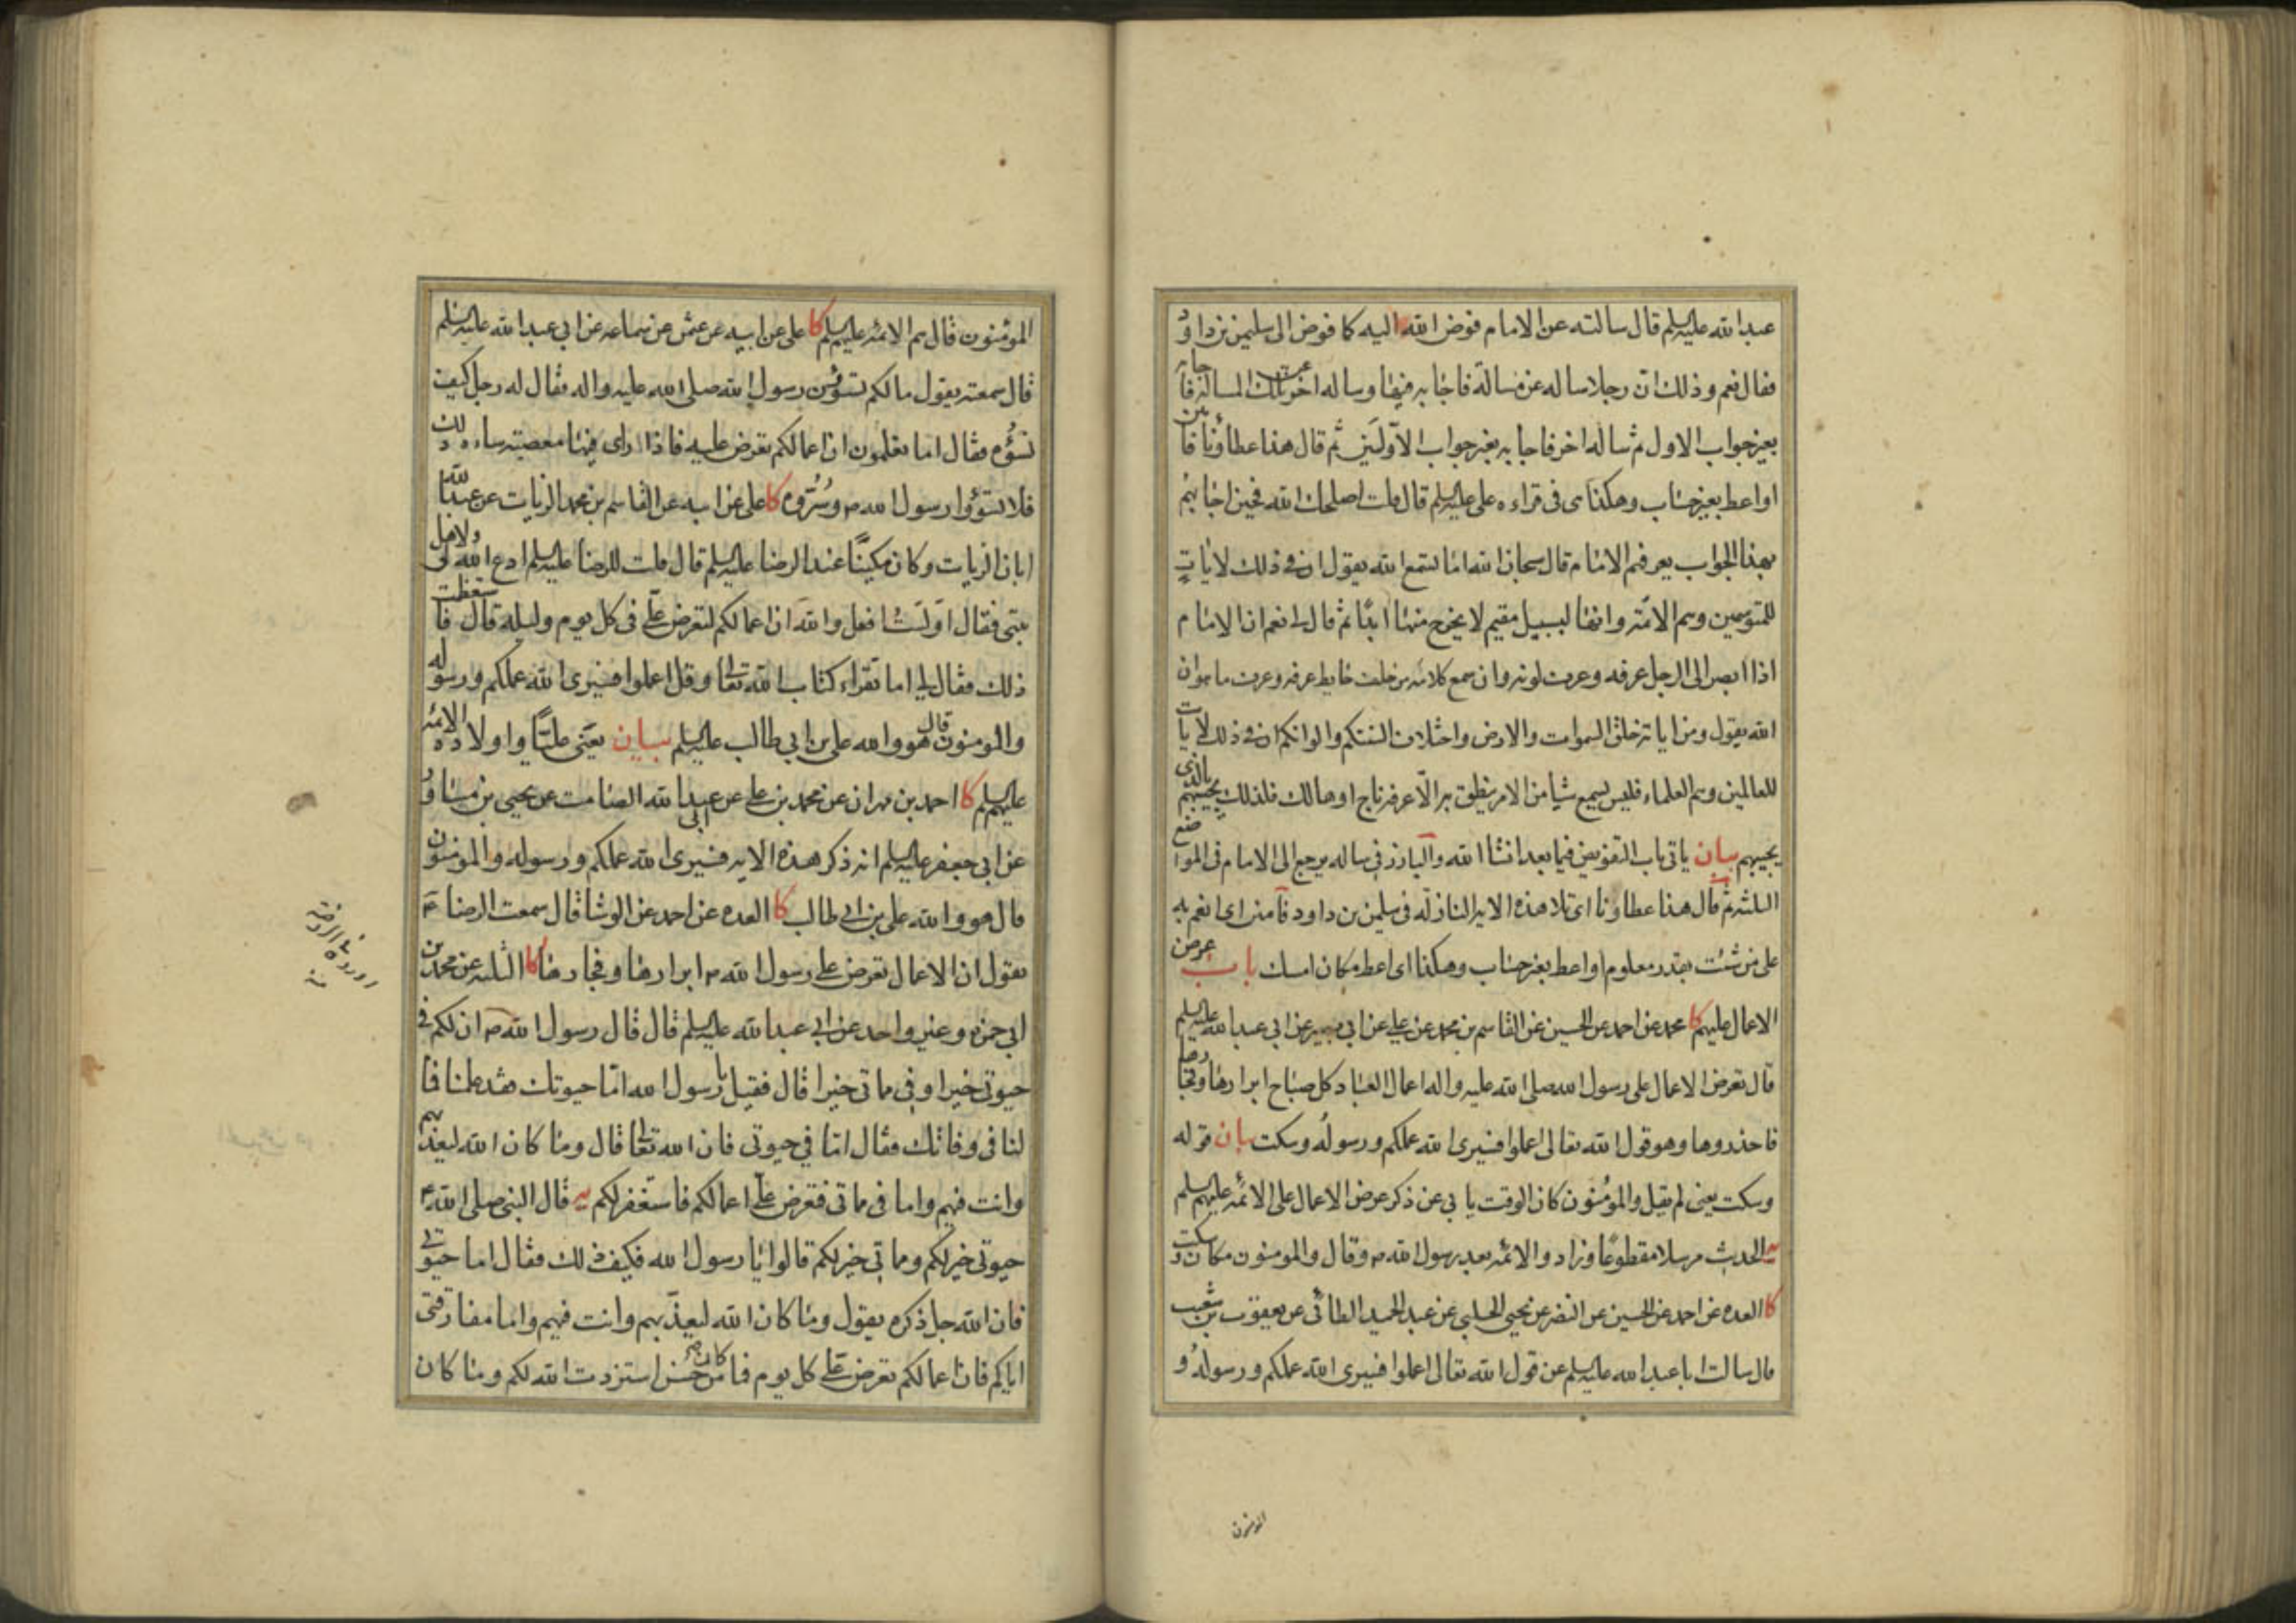 عبدا لله عليه السلم قال سالته عن الامام فوض الله اليه كما فوض الى سليمن بن داود
فقال نعم وذلك ان رجلا ساله عن مسالة فاجابه فيها وساله اخر عن تلك المسالة فاجابه
بغير جواب الاول ثم ساله اخر فاجابه بغير جواب الاولين ثم قال هذا عطاؤنا فامنن
او اعط بغير حساب وهكذا هى فى قراءه على عليه السلم قال قلت اصلحك الله فحين اجابهم
بهذا الجواب يعرفهم الامام قال سبحان الله اما تسمع الله يقول ان فى ذلك لايات
للمتوسمين وهم الائمة وانها لبسبيل مقيم لا يخرج منها ابدا ثم قال لى نعم ان الامام
اذا ابصر الى الرجل عرفه وعرف لونه وان سمع كلامه من خلف حايط عرفه وعرف ما هو ان
الله يقول ومن اياته خلق السموات والارض واختلاف السنتكم والوانكم ان فى ذلك لايات
للعالمين وهم العلماء فليس يسمع شيا من الامر ينطق به الا عرفه ناج او هالك فلذلك يجيبهم بالذى
يجيبهم بيان ياتى باب التفويض فيما بعد انشا الله والبارز فى ساله يرجع الى الامام فى المواضع
الثلثه ثم قال هذا عطاونا اى تلا هذه الايه النازله فى سليمن بن داود فامنن اى انعم به
على من شئت بقدر معلوم او اعط بغير حساب وهكذا اى اعط مكان امسك باب عرض
الاعمال عليهم كا محمد عن احمد عن الحسين عن القاسم بن محمد عن على عن ابى بصير عن ابى عبدا لله عليه السلم
قال تعرض الاعمال على رسول الله صلى الله عليه واله اعمال العباد كل صباح ابرارها وفجارها
فاحذروها وهو قول الله تعالى اعملوا فسيرى الله عملكم ورسوله وسكت بيان قوله
وسكت يعنى لم يقل والمؤمنون كان الوقت يابى عن ذكر عرض الاعمال على الائمه عليهم السلم
يه الحديث مرسلا مقطوعا وزاد والائمه بعد رسول الله ص وقال والمومنون مكان وسكت
كا العده عن احمد عن الحسين عن النضر عن يحيى الحلبى عن عبد الحميد الطائى عن يعقوب بن شعيب
قال سالت ابا عبد الله عليه السلم عن قول الله تعالى اعملوا فسيرى الله عملكم ورسوله و
المومنون
المؤمنون قال هم الائمه عليهم السلم كا على عن ابيه عن عثمن عن سماعه عن ابى عبدا لله عليه السلم
قال سمعته يقول مالكم تسوؤن رسول الله صلى الله عليه واله فقال له رجل كيف
نسوؤه فقال اما تعلمون ان اعمالكم تعرض عليه فاذا راى فيها معصيته ساءه ذلك
فلا تسوؤوا رسول الله ص وسُرّوه كا على عن ابيه عن القاسم بن محمد الزيات عن عبدا لله بن
ابان الزيات وكان مكينا عند الرضا عليه السلم قال قلت للرضا عليه السلم ادع الله لى ولاهل
بيتى فقال اولست افعل والله ان اعمالكم لتعرض على فى كل يوم وليله قال فاستعظمت
ذلك فقال لى اما تقراء كتاب الله تعالى وقل اعملوا فسيرى الله عملكم ورسوله
والمومنون قال هو والله على بن ابى طالب عليه السلم بيان يعنى عليا واولاده الائمه
عليهم السلم كا احمد بن مهران عن محمد بن على عن ابى عبدا لله الصامت عن يحيى بن مساور
عن ابى جعفر عليه السلم انه ذكر هذه الايه فسيرى الله عملكم ورسوله والمومنون
قال هو والله على بن ابى طالب كا العده عن احمد عن الوشا قال سمعت الرضا ع
يقول ان الاعمال تعرض على رسول الله ص ابرارها وفجارها كا الثلثه عن محمد بن
ابى حمزه وغير واحد عن ابى عبدا لله عليه السلم قال قال رسول الله ص ان لكم فى
حيوتى خيرا وفى مماتى خيرا قال فقيل يا رسول الله اما حيوتك فقد علمنا فما
لنا فى وفاتك فقال اما فى حيوتى فان الله تعالى قال وما كان الله ليعذبهم
وانت فيهم واما فى مماتى فتعرض على اعمالكم فاستغفر لكم يه قال النبى صلى الله ص
حيوتى خير لكم ومماتى خير لكم قالوا يا رسول الله فكيف ذلك فقال اما حيوتى
فان الله جل ذكره يقول وما كان الله ليعذبهم وانت فيهم واما مفارقتى
اياكم فان اعمالكم تعرض على كل يوم فما كان من حسن استزدت الله لكم وما كان